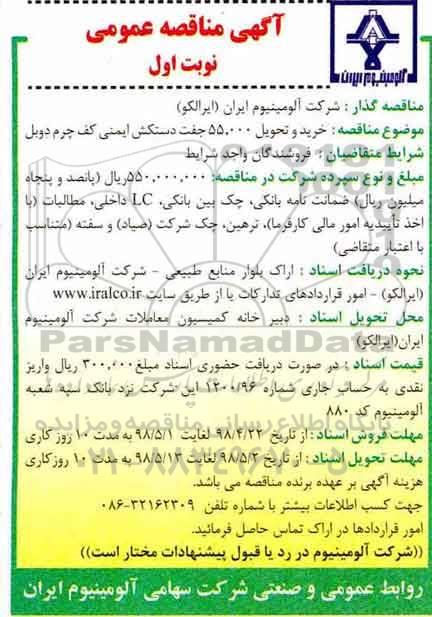 آگهی مناقصه عمومی
نوبت اول
آلومینیوم ایران
مناقصه گذار : شرکت آلومینیوم ایران (ایرالکو)
موضوع مناقصه : خرید و تحویل ۵۵،۰۰۰ جفت دستکش ایمنی کف چرم دوبل
شرایط متقاضیان : فروشندگان واجد شرایط
مبلغ و نوع سپرده شرکت در مناقصه: ۵۵۰،۰۰۰،۰۰۰ریال (پانصد و پنجاه
میلیون ریال) ضمانت نامه بانکی، چک بین بانکی، LC داخلی، مطالبات (با
اخذ تأییدیه امور مالی کارفرما)، ترهین، چک شرکت (صیاد) و سفته (متناسب
با اعتبار متقاضی)
نحوه دریافت اسناد : اراک بلوار منابع طبیعی - شرکت آلومینیوم ایران
(ایرالکو) - امور قراردادهای تدارکات یا از طریق سایت www.iralco.ir
محل تحویل اسناد : دبیر خانه کمیسیون معاملات شرکت آلومینیوم
ایران(ایرالکو)
ParsNamadData
قیمت اسناد : در صورت دریافت حضوری اسناد مبلغ ۳۰۰،۰۰۰ ریال واریز
نقدی به حساب جاری شماره ۱۲۰۰/۹۶ این شرکت نزد بانک سپه شعبه
آلومینیوم کد ۸۸۰
پایگاه اطلاع رسانی مناقصه و مزایده
مهلت فروش اسناد : از تاریخ ۹۸/۴/۲۲ لغایت ۹۸/۵/۱ به مدت ۱۰ روز کاری
مهلت تحویل اسناد : از تاریخ ۹۸/۵/۲ لغایت ۹۸/۵/۱۳ به مدت ۱۰ روزکاری
هزینه آگهی بر عهده برنده مناقصه می باشد.
جهت کسب اطلاعات بیشتر با شماره تلفن ۳۲۱۶۲۳۰۹-۰۸۶
امور قراردادها در اراک تماس حاصل فرمائید.
((شرکت آلومینیوم در رد یا قبول پیشنهادات مختار است))
روابط عمومی و صنعتی شرکت سهامی آلومینیوم ایران